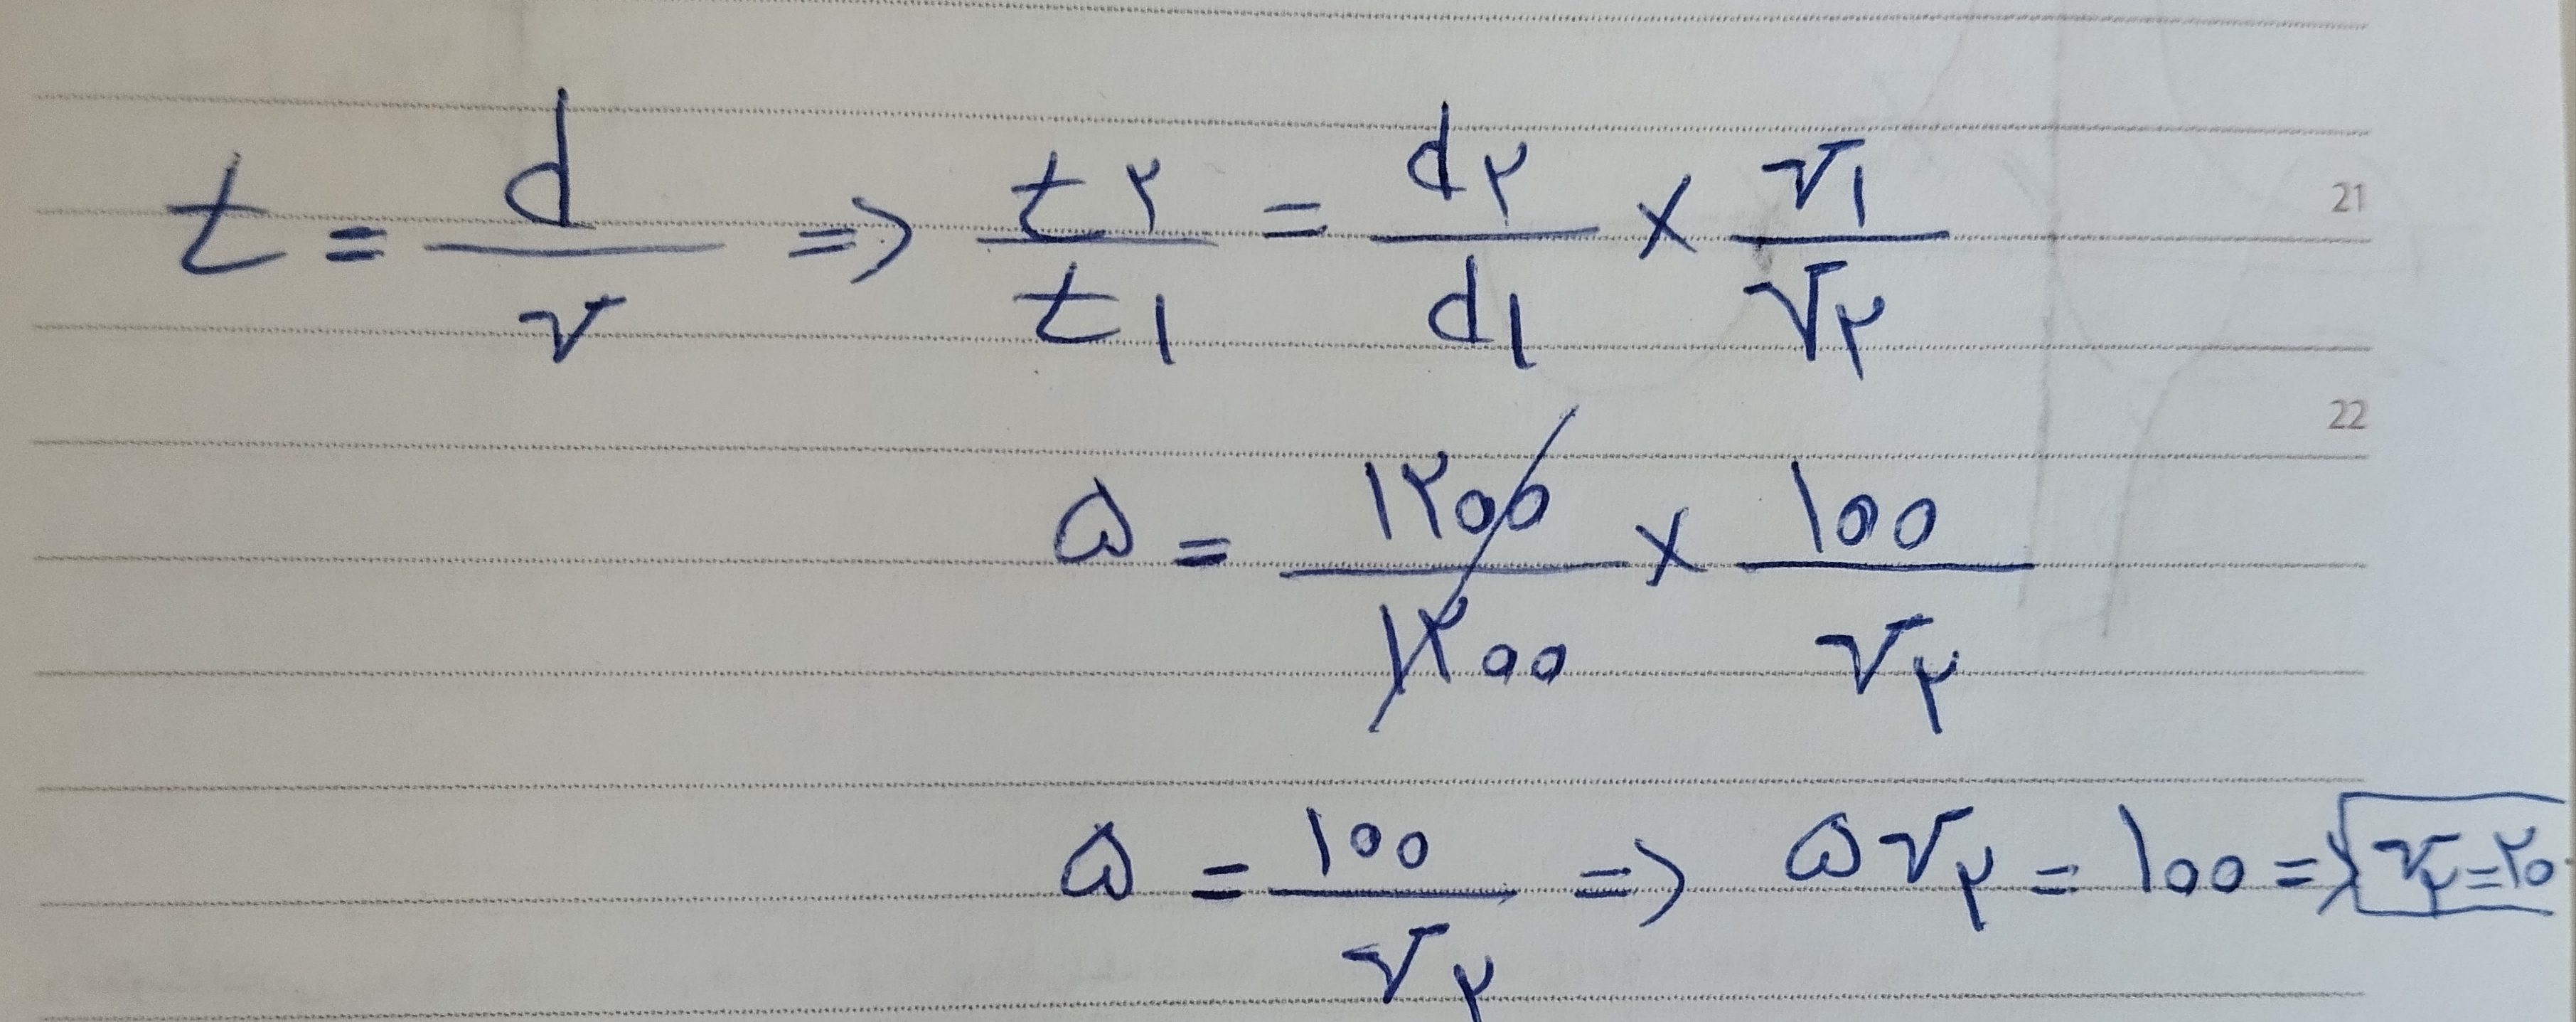 t = d/v => t۲/t۱ = d۲/d۱ × v۱/v۲
21
22
۵ = ۱۲۰۰/۱۲۰۰ × ۱۰۰/v۲
۵ = ۱۰۰/v۲ => ۵v۲ = ۱۰۰ => v۲ = ۲۰